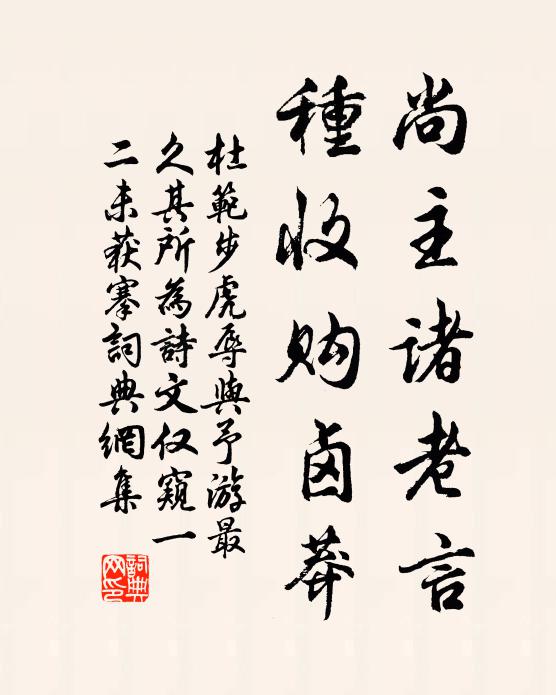 尚主諸老言
種收购卤莽
杜範步虎辱與予游最
久其所為詩文仅窺一
二未获搴詞典網集
詞典网印